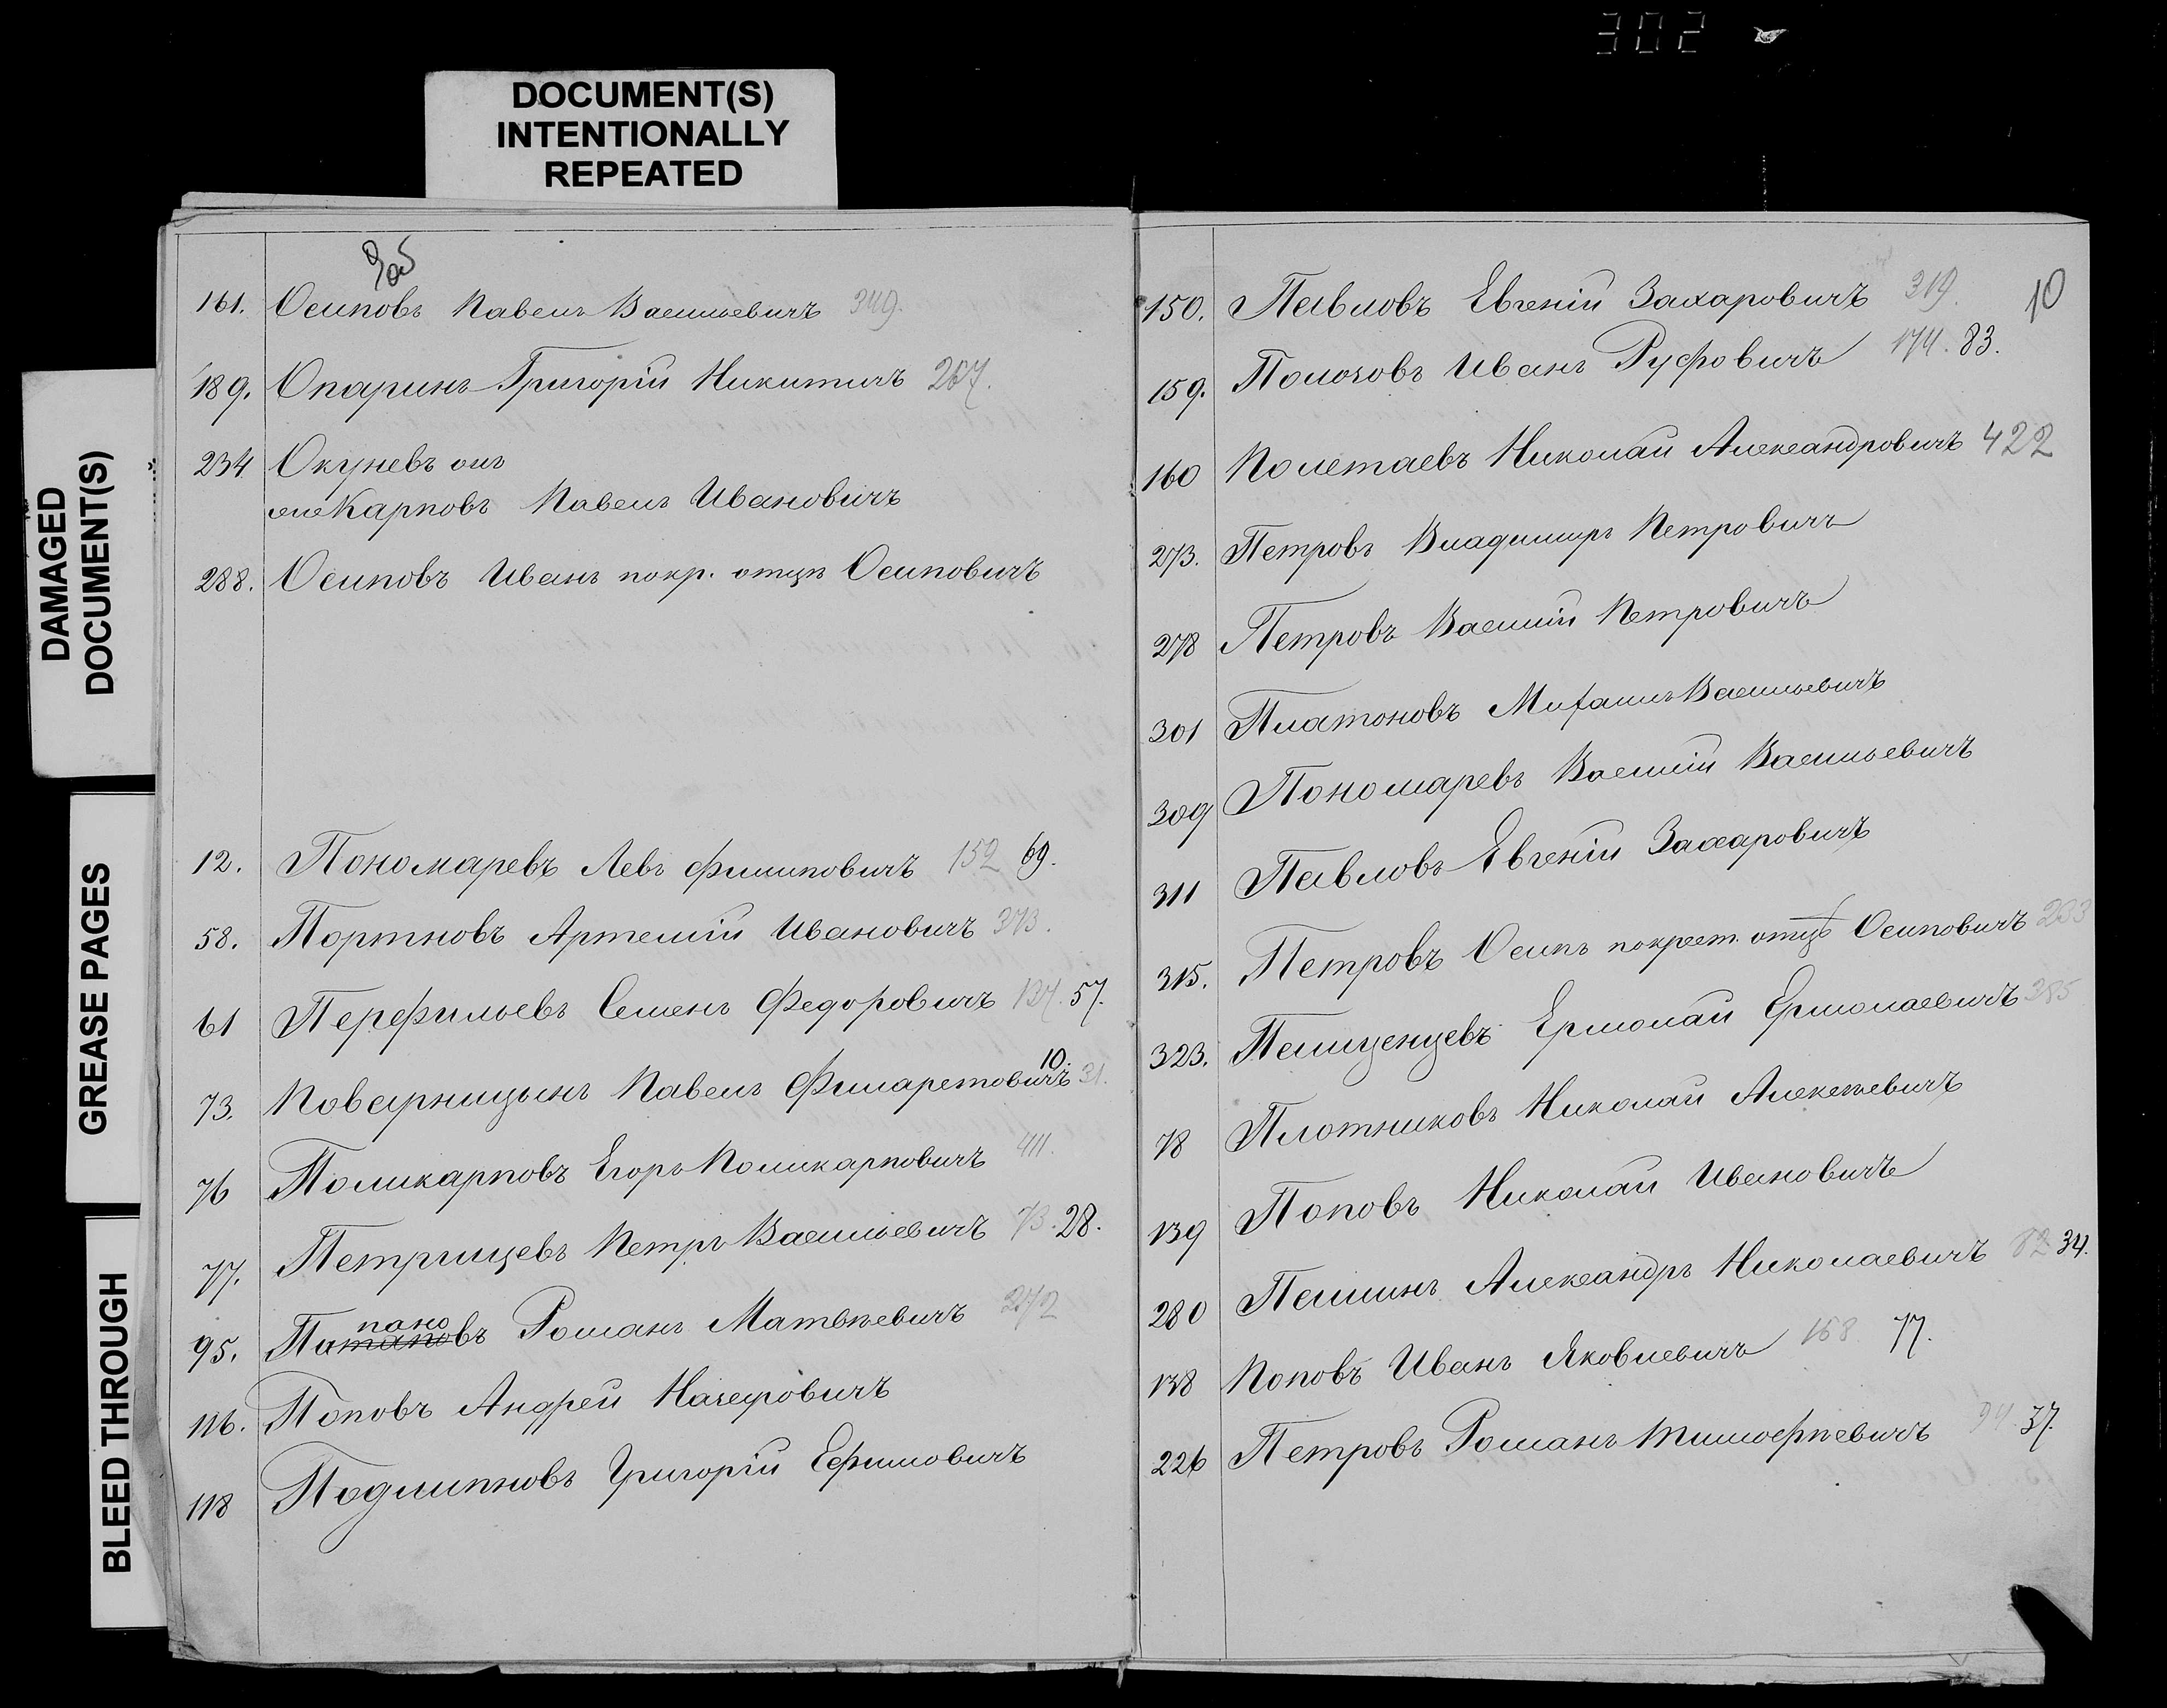 302
DOCUMENT(S)
INTENTIONALLY
REPEATED
DAMAGED
DOCUMENT(S)
GREASE PAGES
BLEED THROUGH
161. Осиповъ Павелъ Васильевичъ 349.
189. Опаринъ Григорій Никитичъ 267.
234 Окуневъ онъ
же Карповъ Павелъ Ивановичъ
288. Осиповъ Иванъ покр. отцѣ Осиповичъ
12. Пономаревъ Левъ Филиповичъ 152 69.
58. Портновъ Артемій Ивановичъ 373.
61 Перфильевъ Семенъ Федоровичъ 127. 57.
73. Поварницынъ Павелъ Филаретовичъ 10. 31.
76 Поликарповъ Егоръ Поликарповичъ 411.
77. Петрищевъ Петръ Васильевичъ 73. 28.
пано
95. Патановъ Романъ Матвѣевичъ 242
116. Поповъ Андрей Назаровичъ
118 Подлипновъ Григорій Ефимовичъ
10
150. Павловъ Евгеній Захаровичъ 319.
159. Полозовъ Иванъ Руфовичъ 174. 83.
160 Полетаевъ Николай Александровичъ 422
273. Петровъ Владимиръ Петровичъ
278 Петровъ Василій Петровичъ
301 Платоновъ Михаилъ Васильевичъ
309 Пономаревъ Василій Васильевичъ
311 Павловъ Евгеній Захаровичъ
315. Петровъ Осипъ покрест. отцѣ Осиповичъ
323. Ермолай Ермолаевичъ 385
78 Плотниковъ Николай Алексѣевичъ
139 Поповъ Николай Ивановичъ
280 Пешинъ Александръ Николаевичъ 82 34.
138 Поповъ Иванъ Яковлевичъ 168 77.
226 Петровъ Романъ Тимофѣевичъ 94. 37.